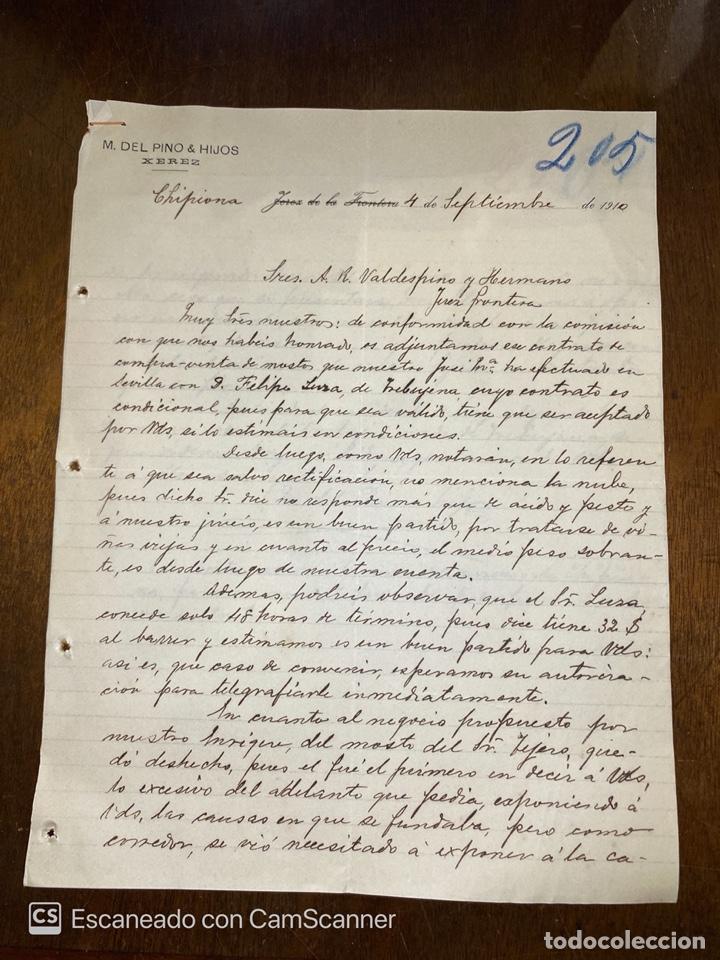 M. DEL PINO & HIJOS
XEREZ
205
Chipiona Jerez de la Frontera 4 de Septiembre de 1910
Sres. A. R. Valdespino y Hermano
Jerez frontera
Muy Sres nuestros: de conformidad con la comisión
con que nos habeis honrado, os adjuntamos ese contrato de
compra-venta de mostos que nuestro José Mª ha efectuado en
Sevilla con D. Felipe Luza, de Trebujena, cuyo contrato es
condicional, pues para que sea válido, tiene que ser aceptado
por Vds, si lo estimais en condiciones.
Desde luego, como Vds, notarán, en lo referen
te á que sea salvo rectificación, no menciona la nube,
pues dicho Sr. dice no responde más que de ácido y pesto y
á nuestro juicio, es un buen partido, por tratarse de vi-
ñas viejas y en cuanto al precio, el medio peso sobran-
te, es desde luego de nuestra cuenta.
Además, podreis observar, que el Sr. Luza,
concede solo 48 horas de término, pues dice tiene 32 $
al barrer y estimamos es un buen partido para Vds:
así es, que caso de convenir, esperamos su autoriza-
ción para telegrafiarle inmediatamente.
En cuanto al negocio propuesto por
nuestro Enrique, del mosto del Sr. Tejero, que-
dó deshecho, pues el fué el primero en decir á Vds,
lo excesivo del adelanto que pedia, exponiendo á
Vds, las causas en que se fundaba, pero como
corredor, se vió necesitado á exponer á la ca-
CS Escaneado con CamScanner
todocoleccion